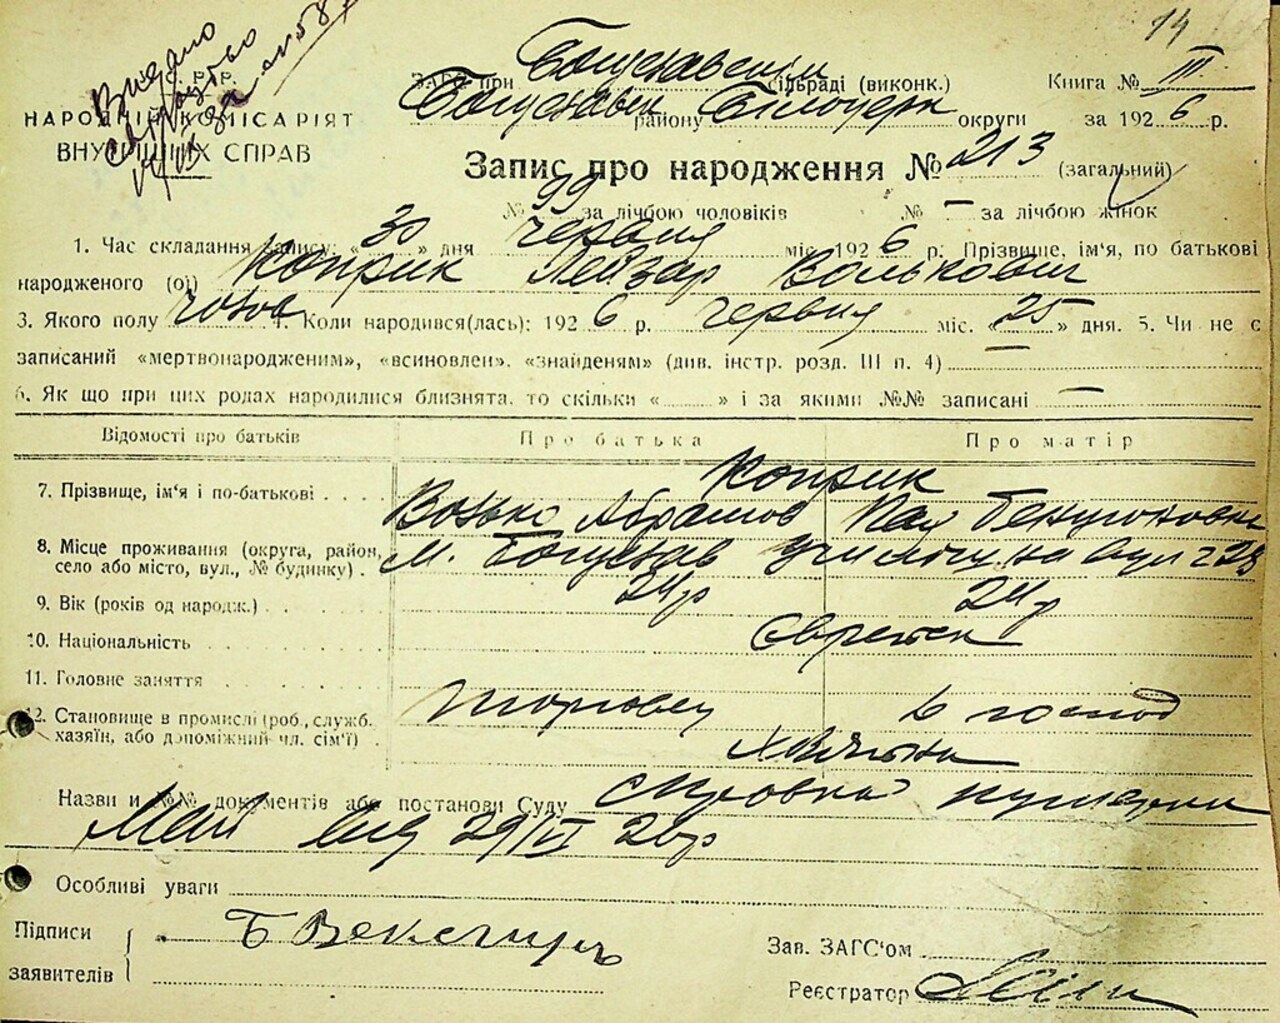 14
Видано
свідоцтво
за № 587
У.С.Р.Р.
НАРОДНІЙ КОМІСАРІЯТ
ВНУТРІШНІХ СПРАВ
ЗАГС при Богуславській сільраді (виконк.) Книга № III
Богуславськ району Білоцерк округи за 1926 р.
Запис про народження № 213 (загальний)
№ 99 за лічбою чоловіків № — за лічбою жінок
1. Час складання запису: «30» дня червня міс. 1926 р. Прізвище, ім'я, по батькові
народженого (ої) Коприк Лейзар Волькович
3. Якого полу чолов 4. Коли народився(лась): 1926 р. червня міс. «25» дня. 5. Чи не є
записаний «мертвонародженим», «всиновлен», «знайденям» (див. інстр. розд. III п. 4) —
6. Як що при цих родах народилися близнята, то скільки « » і за якими №№ записані —
Відомості про батьків Про батька Про матір
Коприк
7. Прізвище, ім'я і по-батькові Волько Абрамов
8. Місце проживання (округа, район, м. Богуслав
село або місто, вул., № будинку)
9. Вік (років од народж.) 24 р 24 р
10. Національність Єврейск
11. Головне заняття
12. Становище в промислі (роб., служб. торговец в господ
хазяїн, або допоміжний чл. сім'ї) хазяїна
Назви и №№ документів або постанови Суду
від 29/VI 26 р
Особливі уваги
Підписи Б Векслир
заявителів
Зав. ЗАГС'ом
Реєстратор